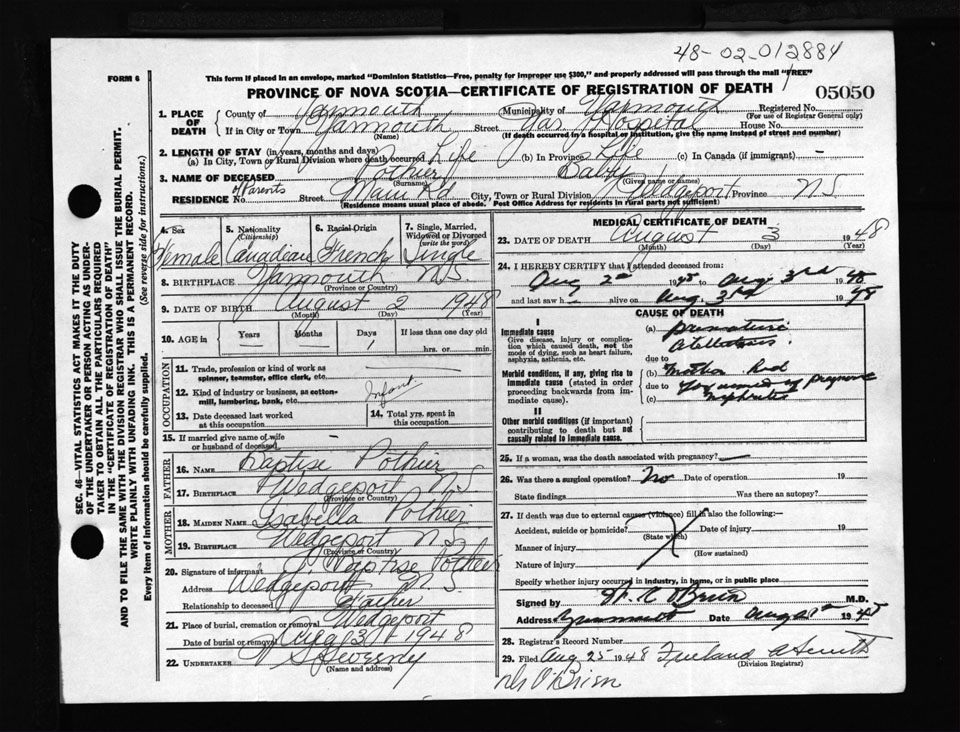 48-02-012884
FORM 6
This form if placed in an envelope, marked "Dominion Statistics—Free, penalty for improper use $300," and properly addressed will pass through the mail "FREE"
PROVINCE OF NOVA SCOTIA—CERTIFICATE OF REGISTRATION OF DEATH
05050
1. PLACE OF DEATH
County of Yarmouth Municipality of Yarmouth Registered No.
(For use of Registrar General only)
If in City or Town Yarmouth Street Yar. Hospital House No.
(Name) (If death occurred in a hospital or institution, give the name instead of street and number)
2. LENGTH OF STAY (in years, months and days)
(a) In City, Town or Rural Division where death occurred Life (b) In Province Life (c) In Canada (if immigrant) —
3. NAME OF DECEASED Pothier Baby
(Surname) (Given name or names)
of Parents
RESIDENCE No. Street Main Rd City, Town or Rural Division Wedgeport Province N S
(Residence means usual place of abode. Post Office Address for residents in rural parts not sufficient)
4. Sex
Female
5. Nationality
(Citizenship)
Canadian
6. Racial Origin
French
7. Single, Married, Widowed or Divorced
(write the word)
Single
8. BIRTHPLACE Yarmouth N.S.
(Province or Country)
9. DATE OF BIRTH August 2 1948
(Month) (Day) (Year)
10. AGE in
Years Months Days If less than one day old
1 hrs. or min.
OCCUPATION
11. Trade, profession or kind of work as spinner, teamster, office clerk, etc.
12. Kind of industry or business, as cotton-mill, lumbering, bank, etc. Infant
13. Date deceased last worked at this occupation
14. Total yrs. spent in this occupation
15. If married give name of wife or husband of deceased
FATHER
16. NAME Baptise Pothier
17. BIRTHPLACE Wedgeport N S
(Province or Country)
MOTHER
18. MAIDEN NAME Isabella Pothier
19. BIRTHPLACE Wedgeport N.S.
(Province or Country)
20. Signature of informant Baptise Pothier
Address Wedgeport N S.
Relationship to deceased Father
21. Place of burial, cremation or removal Wedgeport
Date of burial or removal Aug 3 1948
22. UNDERTAKER V S Sweeney
(Name and address)
MEDICAL CERTIFICATE OF DEATH
23. DATE OF DEATH August 3 1948
(Month) (Day) (Year)
24. I HEREBY CERTIFY that I attended deceased from:
Aug 2nd 1948 to Aug 3rd 1948
and last saw h alive on Aug. 3rd 1948
CAUSE OF DEATH
I
Immediate cause
Give disease, injury or complication which caused death, not the mode of dying, such as heart failure, asphyxia, asthenia, etc.
(a) premature
atelectasis
due to
Morbid conditions, if any, giving rise to immediate cause (stated in order proceeding backwards from immediate cause).
(b) Mother had
due to
(c) Toxaemia of pregnancy
nephritis
II
Other morbid conditions (if important) contributing to death but not causally related to immediate cause.
25. If a woman, was the death associated with pregnancy? —
26. Was there a surgical operation? No Date of operation 19
State findings Was there an autopsy?
27. If death was due to external causes (violence) fill in also the following:—
Accident, suicide or homicide? Date of injury 19
(State which)
Manner of injury
(How sustained)
Nature of injury
Specify whether injury occurred in industry, in home, or in public place
Signed by O'Brien M.D.
Address Yarmouth Date Aug 1948
28. Registrar's Record Number
29. Filed Aug 25 1948 Freeland A Smith
(Division Registrar)
Dr O'Brien
SEC. 46—VITAL STATISTICS ACT MAKES IT THE DUTY OF THE UNDERTAKER OR PERSON ACTING AS UNDERTAKER TO OBTAIN ALL THE PARTICULARS REQUIRED IN THE "CERTIFICATE OF REGISTRATION OF DEATH" AND TO FILE THE SAME WITH THE DIVISION REGISTRAR WHO SHALL ISSUE THE BURIAL PERMIT.
WRITE PLAINLY WITH UNFADING INK. THIS IS A PERMANENT RECORD.
Every item of Information should be carefully supplied. (See reverse side for instructions.)